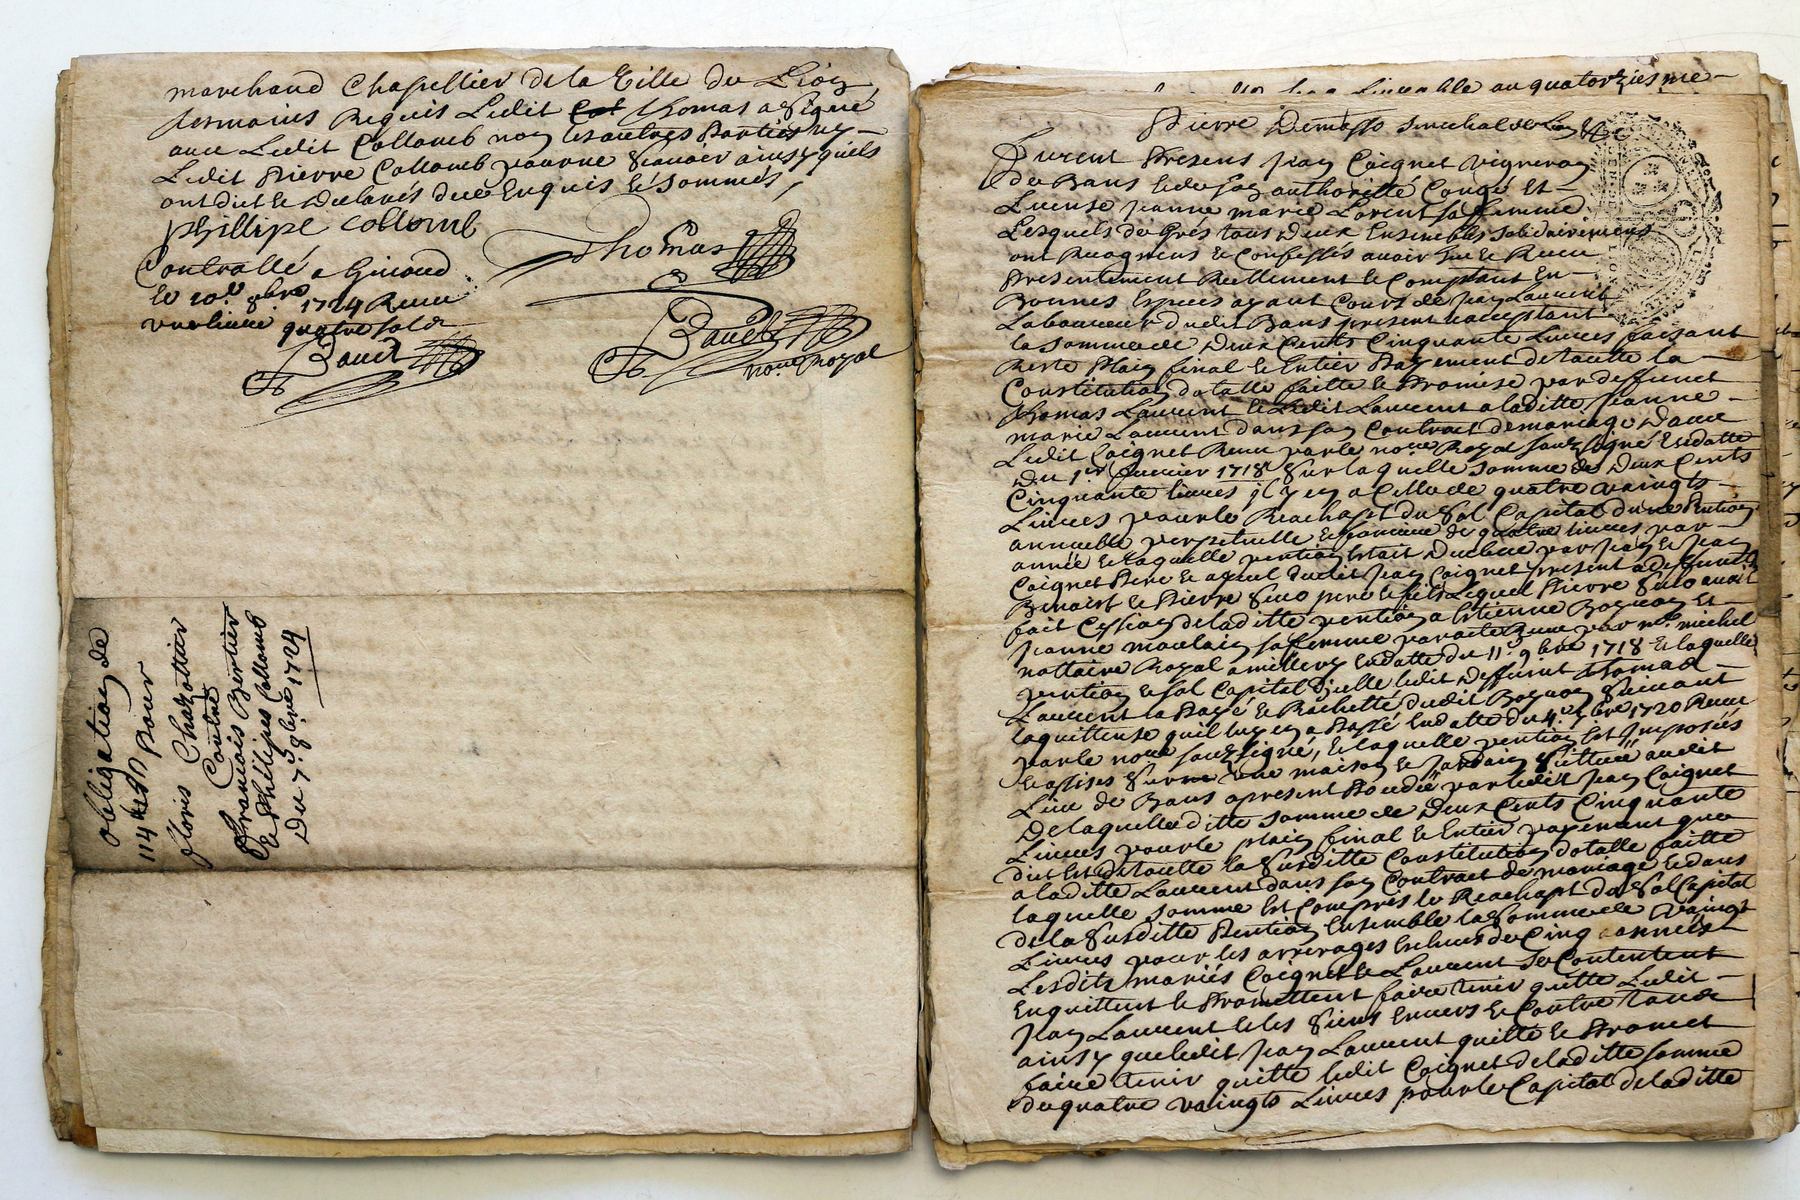 marchand Chapellier de la Ville de Lion
temoins Requis Ledit Thomas a Signé
avec Ledit Collomb non les autres Parties ny
Ledit Pierre Collomb pour ne Scavoir ainsy quils
ont dit et declarés de ce Enquis et Sommés
phillipe collomb
Thomas
Controllé a Givord
le 10e 8bre 1724 Receu
une livre quatre sols
Baudt
Baudt
nore Royal
obligation de
114
pour
floris Chazottier
Contre
François Bertier
et Phillipes Collomb
Du 7e 8bre 1724
Livrable au quatorziesme
Pierre Demasso Senechal de Lion
Furent Presens Jean Coignet Vigneron
de Bans et de son authorité Congé et
License Jeanne marie Lorent sa femme
Lesquels de Gres tous deux Ensembles solidairement
ont Recognus et Confessés avoir Eu et Receu
Presentement Reellement et Comptant En
Bonnes Especes ayant Cours de Jean Laurent
Laboureur dudit Bans present et acceptant
la somme de Deux Cents Cinquante Livres faisant
Reste Plain final et Entier Payement de toutte la
Constitution dotalle faitte et Promise par deffunct
Thomas Laurent et Ledit Laurent a laditte Jeanne
marie Laurent dans son Contrat de mariage avec
Ledit Coignet Receu par le nore Royal soubsigné En datte
Du 1er fevrier 1718 Sur laquelle somme de Deux Cents
Cinquante livres il y en a Celle de quatre vaingts
Livres pour le Reachapt du Sol Capital d'une Pention
annuelle perpetuelle et fonciere de quatre livres par
année et laquelle pention Estoit par Jean et Jean
Coignet Pere et ayeul dudit Jean Coignet present a deffunts
Benoist et Pierre pere et fils Lequel Pierre avoit
fait Cession de laditte pention a Estienne Et
Jeanne moulain sa femme par acte Receu par me michel
nottaire Royal a millery En datte du 11e 9bre 1718 Et laquelle
pention et sol Capital d'jcelle ledit deffunt Thomas
Laurent a Payé et Rachetté dudit Suivant
la quittense quil luy en a Passé En datte du 4e 1720 Receu
par le nore soubsigné, et laquelle pention Est Imposée
et assise Sur une maison et Jardain Scittuée audit
Lieu de Bans a present par ledit Jean Coignet
De laquelle ditte somme de Deux Cents Cinquante
Livres pour le plain final et Entier payement que
dict Est de toutte la Susditte Constitution dotalle faitte
a laditte Laurent dans son Contract de mariage Et dans
laquelle somme Est Compris le Reachapt du Sol Capital
de la Susditte Pention Ensemble la Somme de vaingt
Livres pour les arrerages de Cinq années
Lesdits mariés Coignet et Laurent Se Contentent
En quittent et Promettent faire tenir quitte Ledit
Jean Laurent et les Siens Envers et Contre tous
ainsy que ledit Jean Laurent quitte et Promet
faire tenir quitte ledit Coignet de laditte somme
de quatre vaingts Livres pour le Capital de laditte